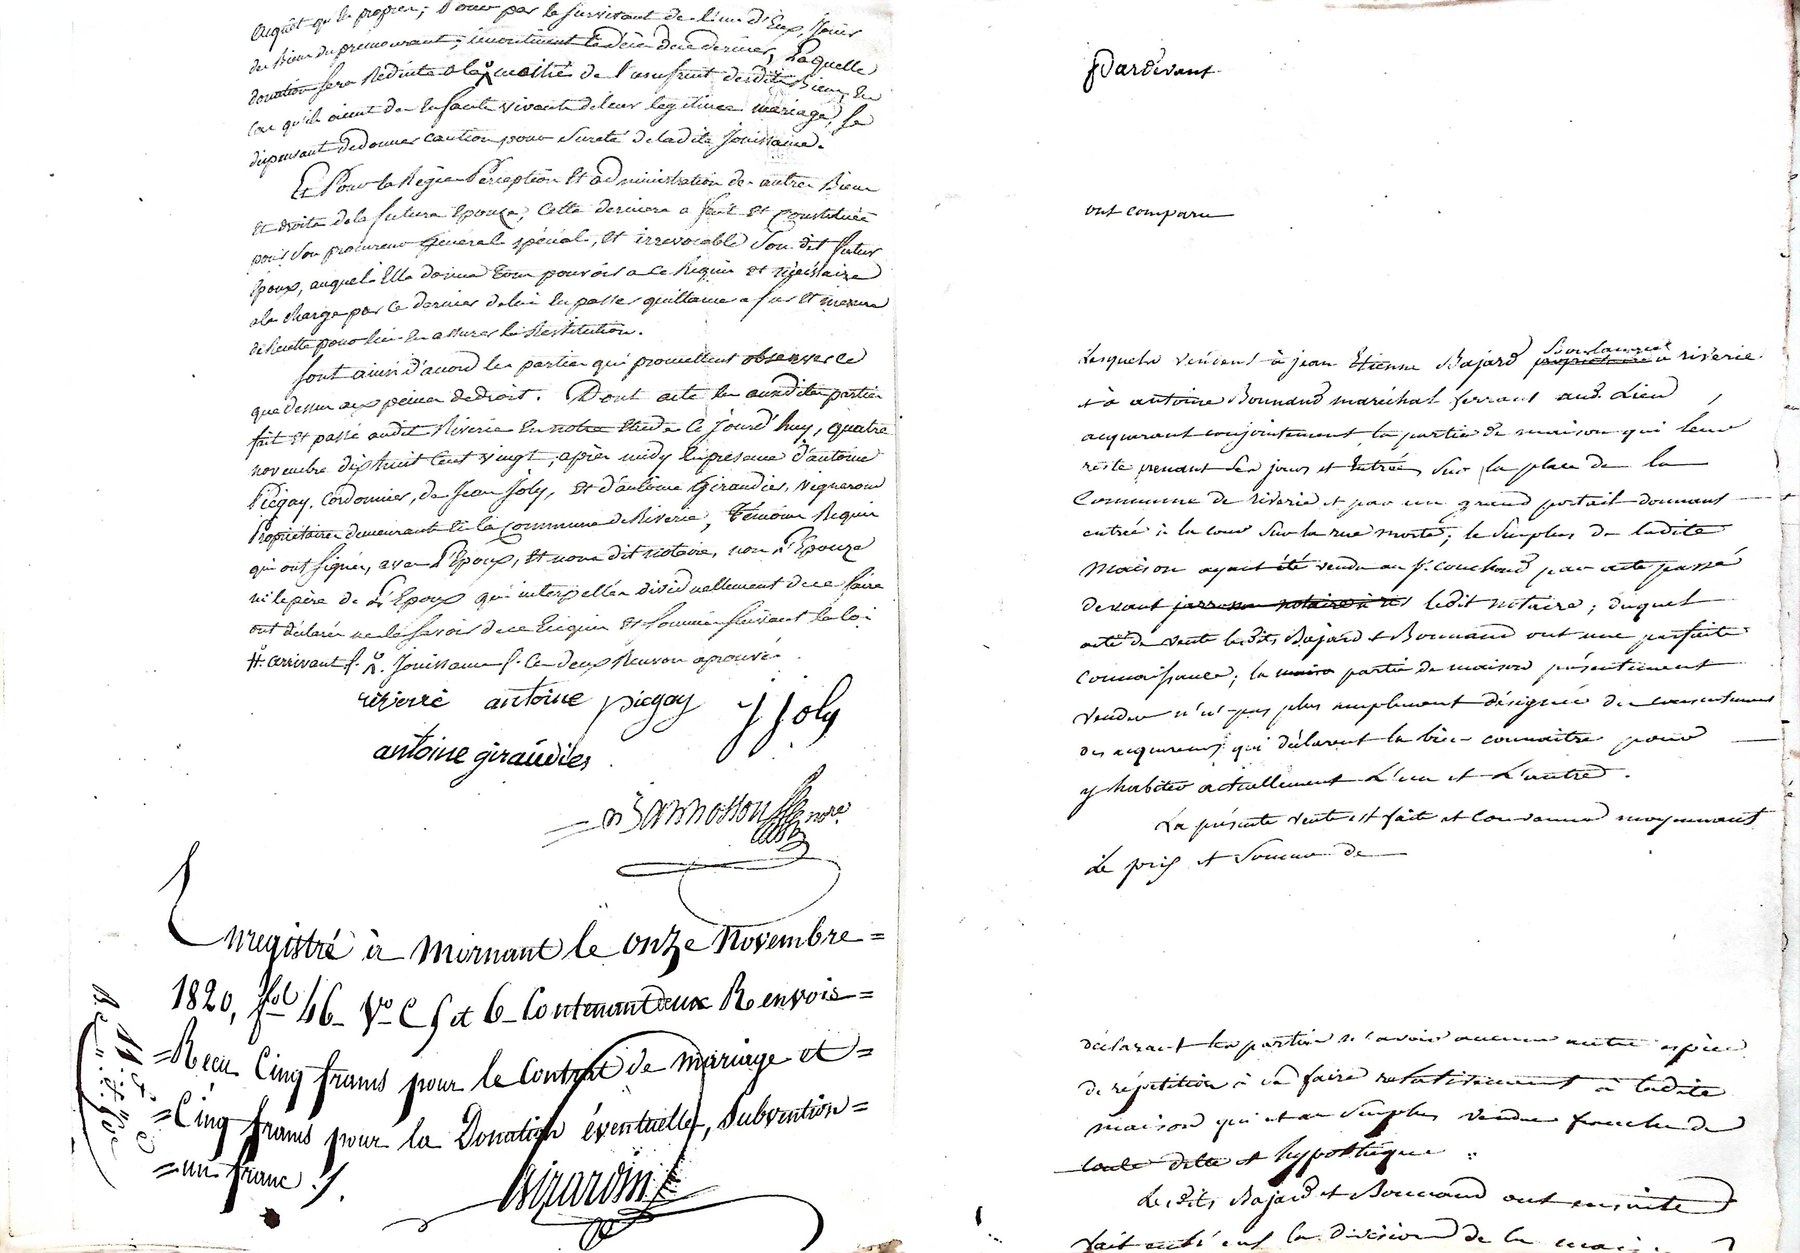 acquêt qu'de propres; Jouir par le survivant de l'un d'Eux, Jouir
des Biens du prémourant, incontinent le décès de ce dernier, Laquelle
donation sera Réduite a la moitié de l'usufruit desdits Biens, En
Cas qu'ils aient des Enfants vivants de leur légitime mariage, se
dispensant de donner caution pour sureté de ladite Jouissance.
Et Pour la Régie Perception Et administration des autres Biens
Et droits de la future Epouze, Cette dernière a fait Et constitué
pour son procureur Général spécial, Et irrevocable Son dit futur
Epoux, auquel Elle donne tous pouvoirs a ce Requis Et nécéssaire
a la charge par ce dernier de lui En passer quittance a fur Et mesure
de Recette pour lui En assurer la Restitution.
Sont ainsi d'accord les parties qui promettent observer ce
que dessus aux peines de droit. Dont acte les auxdites parties
fait Et passé audit Riverie En notre Etude ce Jourd'huy, quatre
novembre dixhuit Cent vingt, après midy En présence d'antoine
Piégay, Cordonnier, de Jean Joly, Et d'antoine Giraudier, vignerons
Propriétaires demeurant En la Commune de Riverie, Témoins Requis
qui ont signés, avec l'Epoux, Et nous dit notaire, non l'Epouze
ni le père de L'Epoux qui interpellés individuellement de ce faire
ont déclarés ne le savoir de ce Enquis Et sommés suivant la loi
#. arrivant f. Jouissance f. Ces deux Renvois aprouvés.
rivierre antoine piegay j joly
antoine giraudier
Bannosson nore.
Enregistré à Mornant le onze novembre =
1820, fol 46 Vo C 5 et 6 Contenant deux Renvois =
= Reçu Cinq francs pour le Contrat de mariage et =
= Cinq francs pour la Donation éventuelle, Subvention =
= un franc.
Girardin
Pardevant
ont comparu
Lesquels vendent à jean Etienne Bajard propriétaire à riverie
et à antoine Bonnand maréchal ferrant aud. Lieu
acquerant conjointement, la partie de maison qui leur
reste prenant ses jours et Entrées sur la place de la
Commune de riverie et par un grand portail donnant
entrée à la cour sur la rue morte; le surplus de ladite
maison ayant été vendu au s. couchoud par acte passé
devant jarrosson notaire à ri ledit notaire; duquel
acte de vente lesdits Bajard et Bonnand ont une parfaite
connaissance; la partie de maison présentement
vendue n'est pas plus amplement désignée du consentement
des acquereurs qui déclarent la bien connaitre pour
y habiter actuellement L'un et L'autre.
La présente vente est faite et convenue moyennant
Le prix et somme de
déclarant les parties n'avoir aucune autre espèce
de répétition à se faire relativement à ladite
maison qui est au surplus vendue franche de
toute dette et hypothèque.
Lesdits Bajard et Bonnand ont ensuite
fait entr'eux la division de la mai